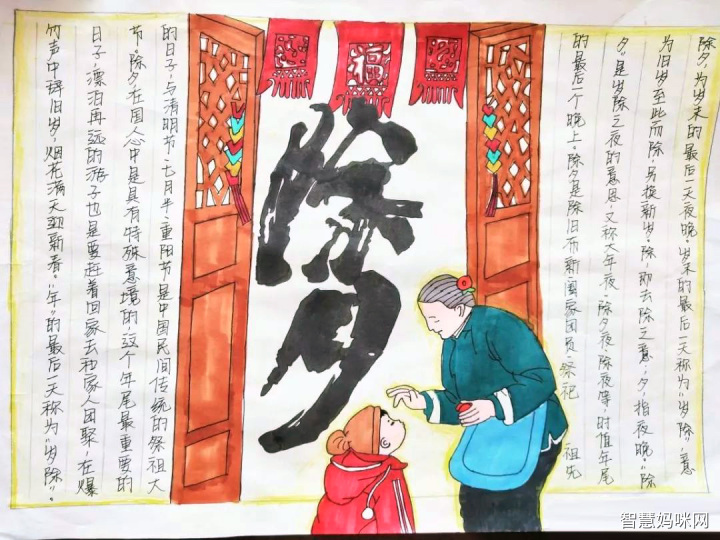 除夕，为岁末的最后一天夜晚。岁末的最后一天称为"岁除"，意
为旧岁至此而除，另换新岁。除，即去除之意；夕，指夜晚。"除
夕"是岁除之夜的意思，又称大年夜、除夕夜、除夜等，时值年尾
的最后一个晚上。除夕是除旧布新、家团员、祭祀 祖先
福
除夕
的日子，与清明节、七月半、重阳节是中国民间传统的祭祖大
节。除夕在国人心中是具有特殊意境的，这个年尾最重要的
日子，漂泊再远的游子也是要赶着回家去和家人团聚，在爆
竹声中辞旧岁，烟花满天迎新春。"年"的最后一天称为"岁除"。
智慧妈咪网